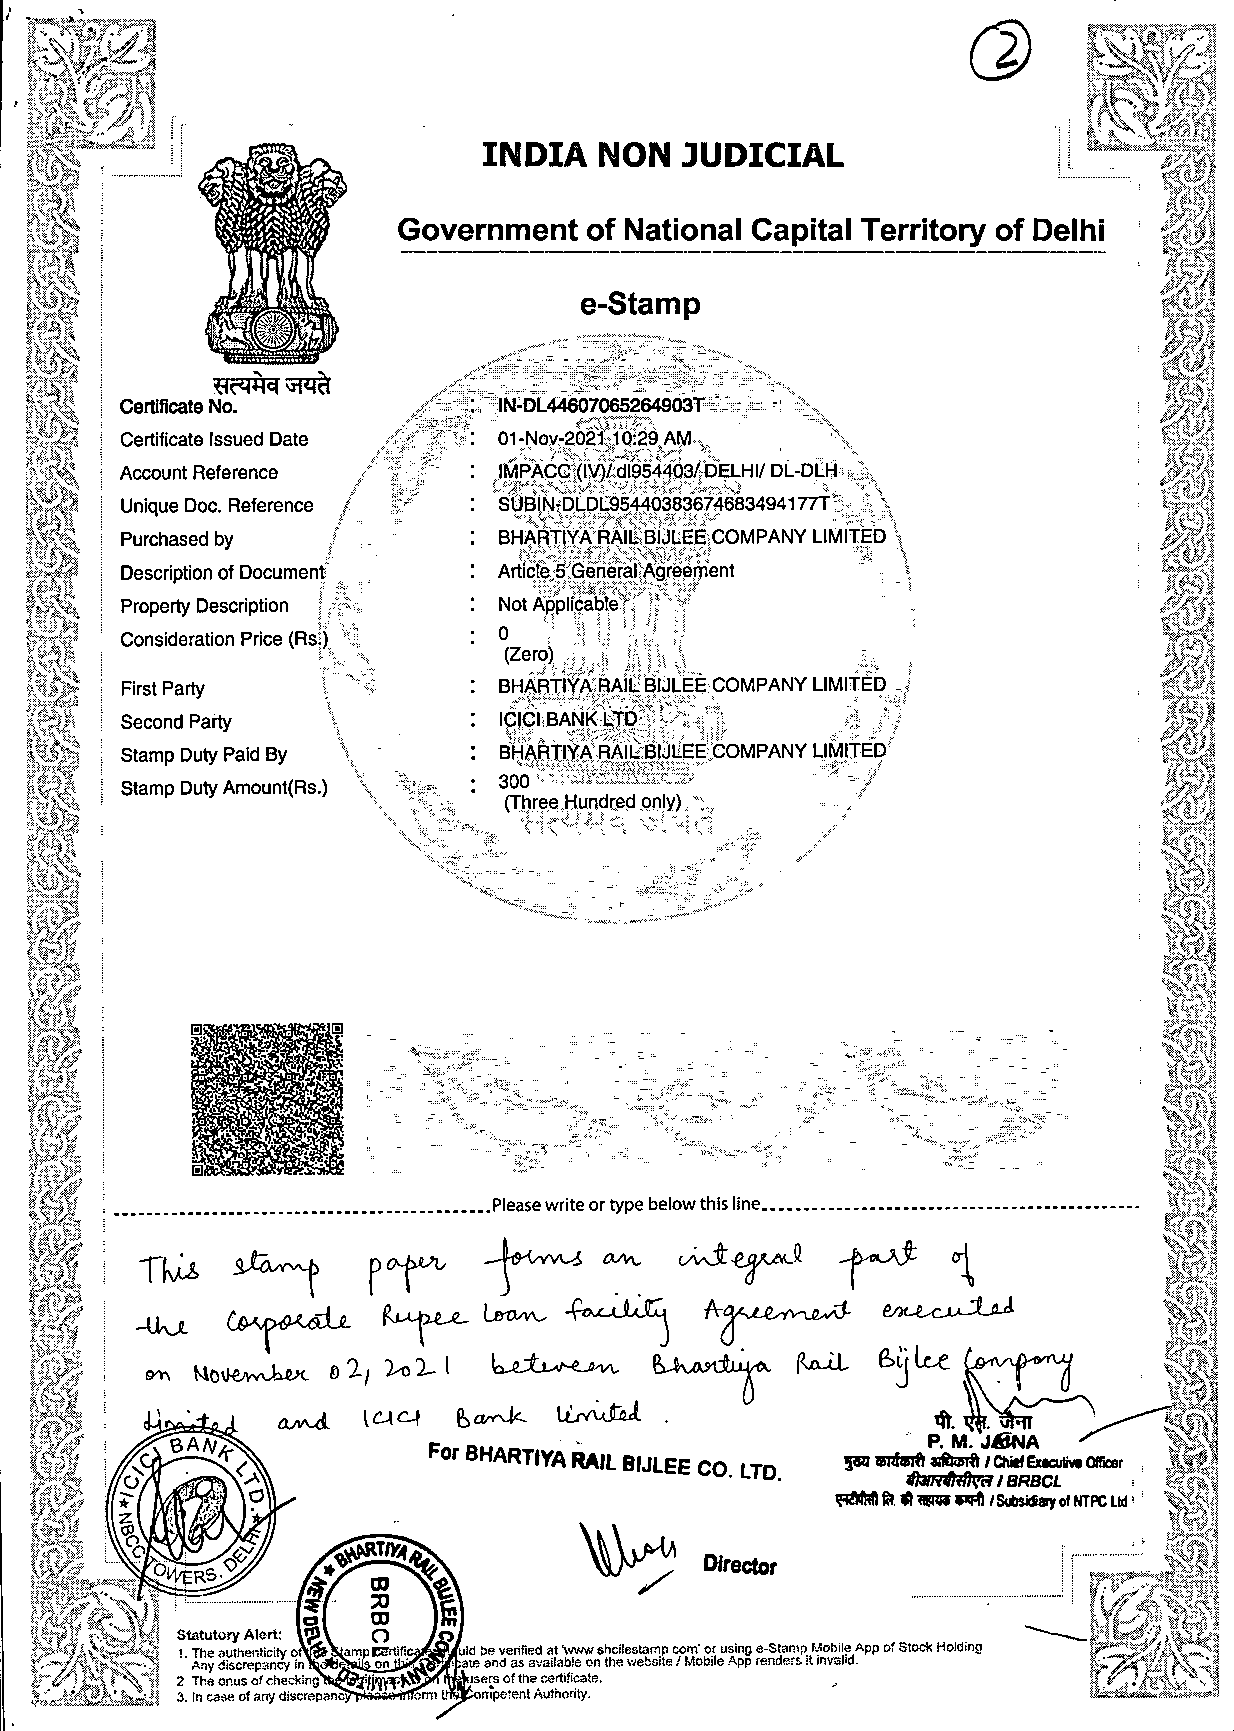 2
INDIA NON JUDICIAL
Government of National Capital Territory of Delhi
e-Stamp
सत्यमेव जयते
Certificate No. : IN-DL44607065264903T
Certificate Issued Date : 01-Nov-2021 10:29 AM
Account Reference : IMPACC (IV)/ dl954403/ DELHI/ DL-DLH
Unique Doc. Reference : SUBIN-DLDL95440383674683494177T
Purchased by : BHARTIYA RAIL BIJLEE COMPANY LIMITED
Description of Document : Article 5 General Agreement
Property Description : Not Applicable
Consideration Price (Rs.) : 0
(Zero)
First Party : BHARTIYA RAIL BIJLEE COMPANY LIMITED
Second Party : ICICI BANK LTD
Stamp Duty Paid By : BHARTIYA RAIL BIJLEE COMPANY LIMITED
Stamp Duty Amount(Rs.) : 300
(Three Hundred only)
सत्यमेव जयते
Please write or type below this line
This stamp paper forms an integral part of
the Corporate Rupee Loan facility Agreement executed
on November 02, 2021 between Bhartiya Rail Bijlee Company
Limited and ICICI Bank Limited.
पी. एम. जैना
P. M. JENA
मुख्य कार्यकारी अधिकारी / Chief Executive Officer
बीआरबीसीएल / BRBCL
एनटीपीसी लि. की सहायक कम्पनी / Subsidiary of NTPC Ltd
For BHARTIYA RAIL BIJLEE CO. LTD.
Director
ICICI BANK LTD.
NBCC TOWERS, DELHI
BHARTIYA RAIL BIJLEE COMPANY LIMITED
NEW DELHI
BRBC
Statutory Alert:
1. The authenticity of Stamp certificate should be verified at 'www shcilestamp com' or using e-Stamp Mobile App of Stock Holding
Any discrepancy in the details on the cate and as available on the website / Mobile App renders it invalid.
2 The onus of checking the users of the certificate.
3. In case of any discrepancy please inform the Competent Authority.